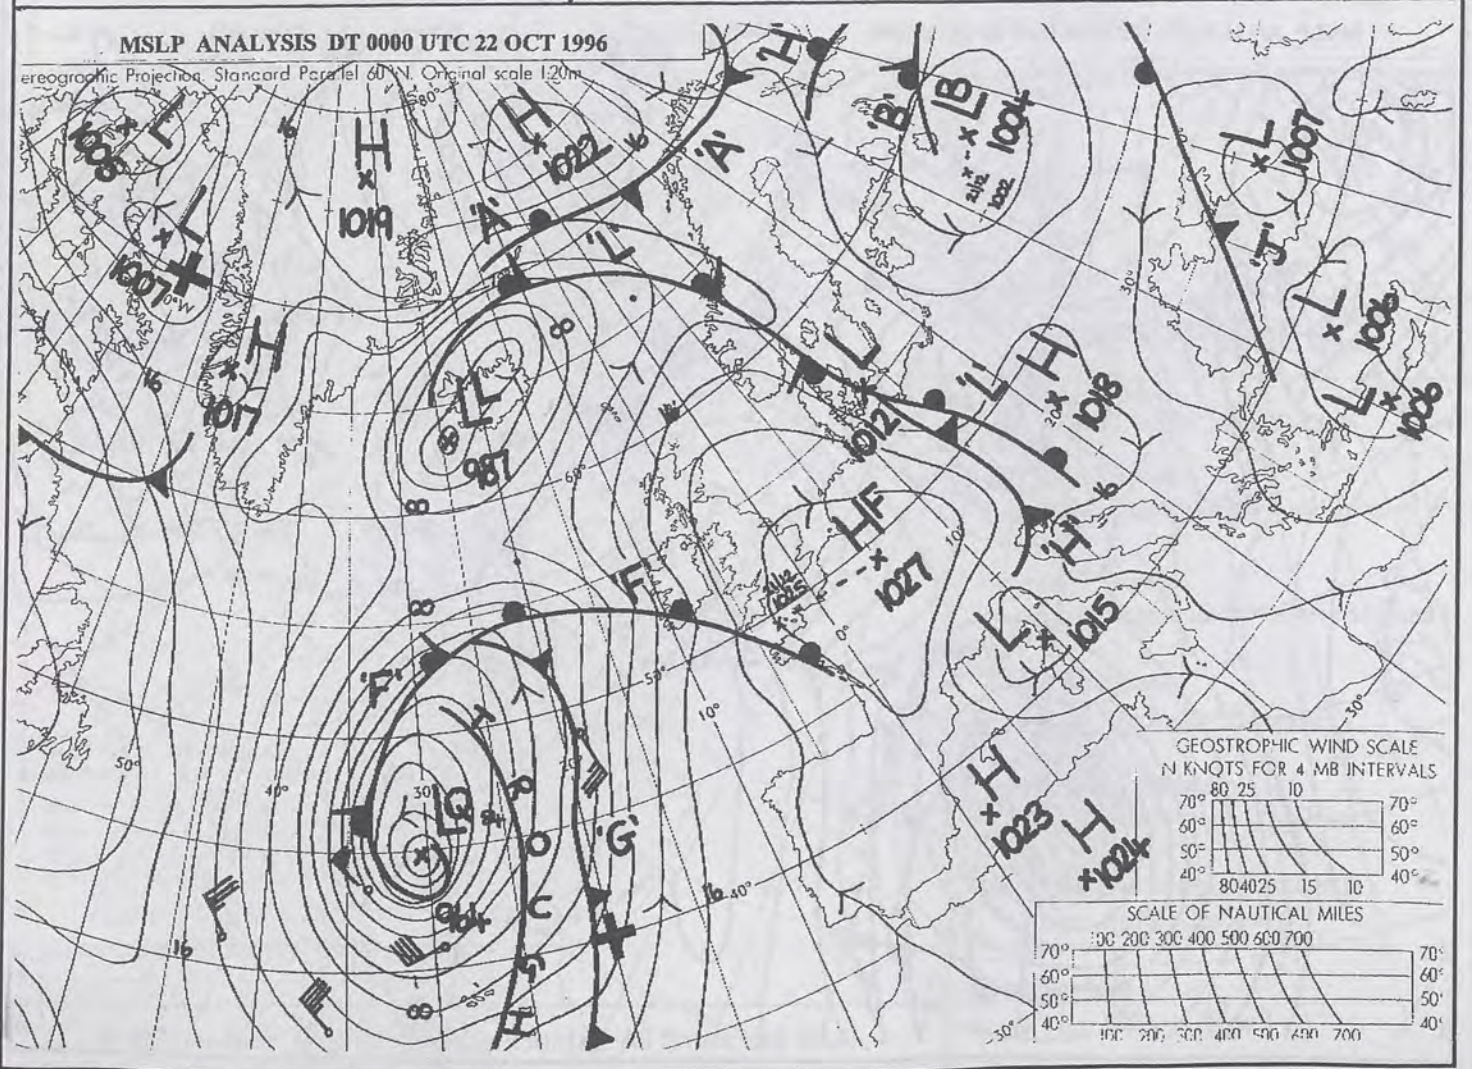 MSLP ANALYSIS DT 0000 UTC 22 OCT 1996
ereographic Projection. Standard Parallel 60°N. Original scale 1:20m
80°
L
L
1007
H
1019
16
H
1022
16
'A'
'A'
'H'
'B'
LB
1004
21/12
1002
L
1007
'J'
30°
L
1006
L
1006
H
1017
16
'L'
8
L
987
8
60°
L
1012
'L'
H
1018
16
'H'
HF
1027
21/12
1025
10°
0°
L
1015
'F'
8
'F'
50°
10°
TROUGH
LQ
964
30°
40°
50°
20°
'G'
16
40°
16
8
H
1023
H
1024
30°
30°
GEOSTROPHIC WIND SCALE
IN KNOTS FOR 4 MB INTERVALS
80 25 10
70° 70°
60° 60°
50° 50°
40° 40°
80 40 25 15 10
SCALE OF NAUTICAL MILES
100 200 300 400 500 600 700
70° 70°
60° 60°
50° 50°
40° 40°
100 200 300 400 500 600 700